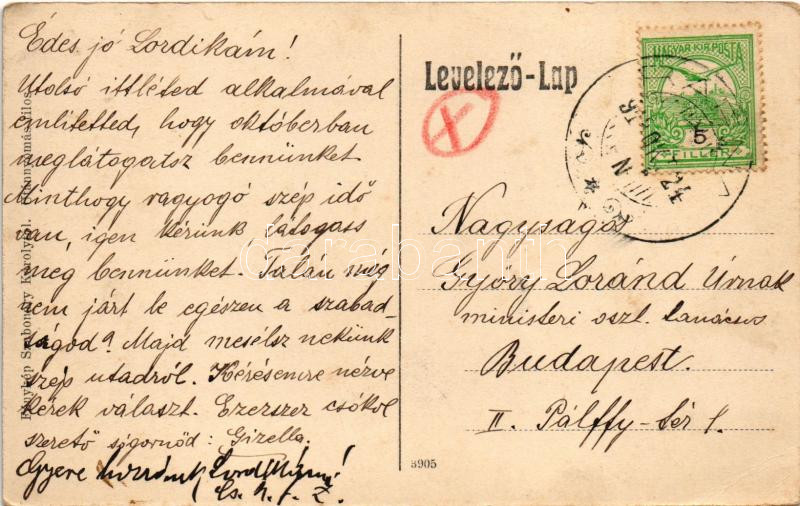 Édes jó Lordikám!
Utolsó ittléted alkalmával
említetted, hogy októberban
meglátogatsz bennünket
Minthogy ragyogó szép idő
van, igen kérünk látogass
meg bennünket. Talán még
nem járt le egészen a szabad-
ságod? Majd mesélsz nekünk
szép utadról. Kérésemre nézve
kérek választ. Ezerszer csókol
szerető sógornőd: Gizella.
Gyere hozzánk
Levelező-Lap
MAGYAR KIR. POSTA
5
FILLÉR
24
Nagyságos
Győry Loránd Úrnak
ministeri oszt. tanácsos
Budapest.
II. Pálffy-tér 1.
3905
Fénykép Szabonáry Károlytól.
darabanth